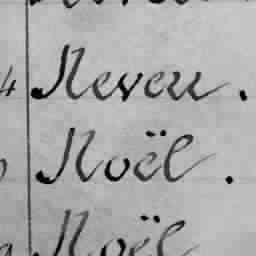 4 Neveu.
Noël.
Noël